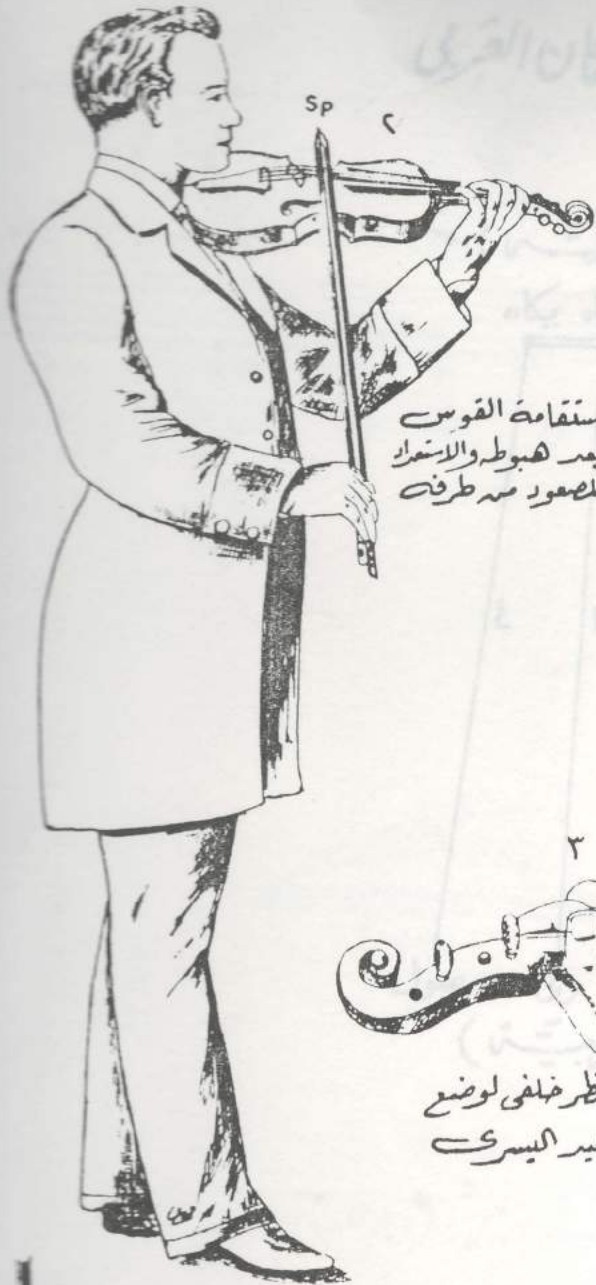 Sp ٢
ستقامة القوس
بعد هبوطه والاستعداد
للصعود من طرفه
٣
ظر خلفى لوضع
ليد اليسرى